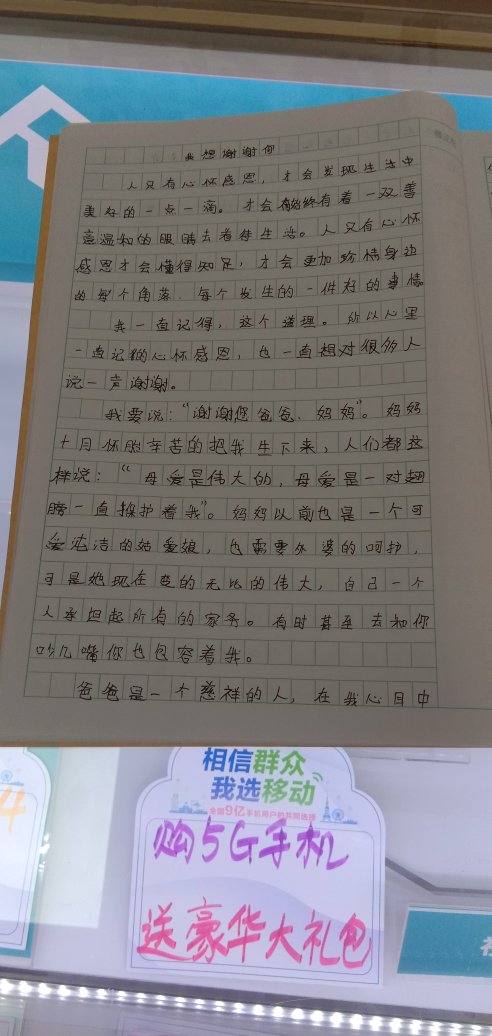 我想谢谢你
人只有心怀感恩,才会发现生活中
美好的一点一滴。才会始终有着一双善
意温和的眼睛去看待生活。人只有心怀
感恩才会懂得知足,才会更加珍惜身边
的每个角落.每个发生的一件好的事情
我一直记得,这个道理。所以心里
一直记得心怀感恩,也一直想对很多人
说一声谢谢。
我要说:“谢谢您爸爸、妈妈”。妈妈
十月怀胎辛苦的把我生下来,人们都这
样说:“母爱是伟大的,母爱是一对翅
膀一直保护着我”。妈妈以前也是一个可
爱纯洁的姑娘,也需要外婆的呵护,
可是她现在变的无比的伟大,自己一个
人承担起所有的家务。有时甚至去和你
吵几嘴你也包容着我。
爸爸是一个慈祥的人,在我心目中
相信群众
我选移动
全国9亿手机用户的共同选择
购5G手机
送豪华大礼包
4